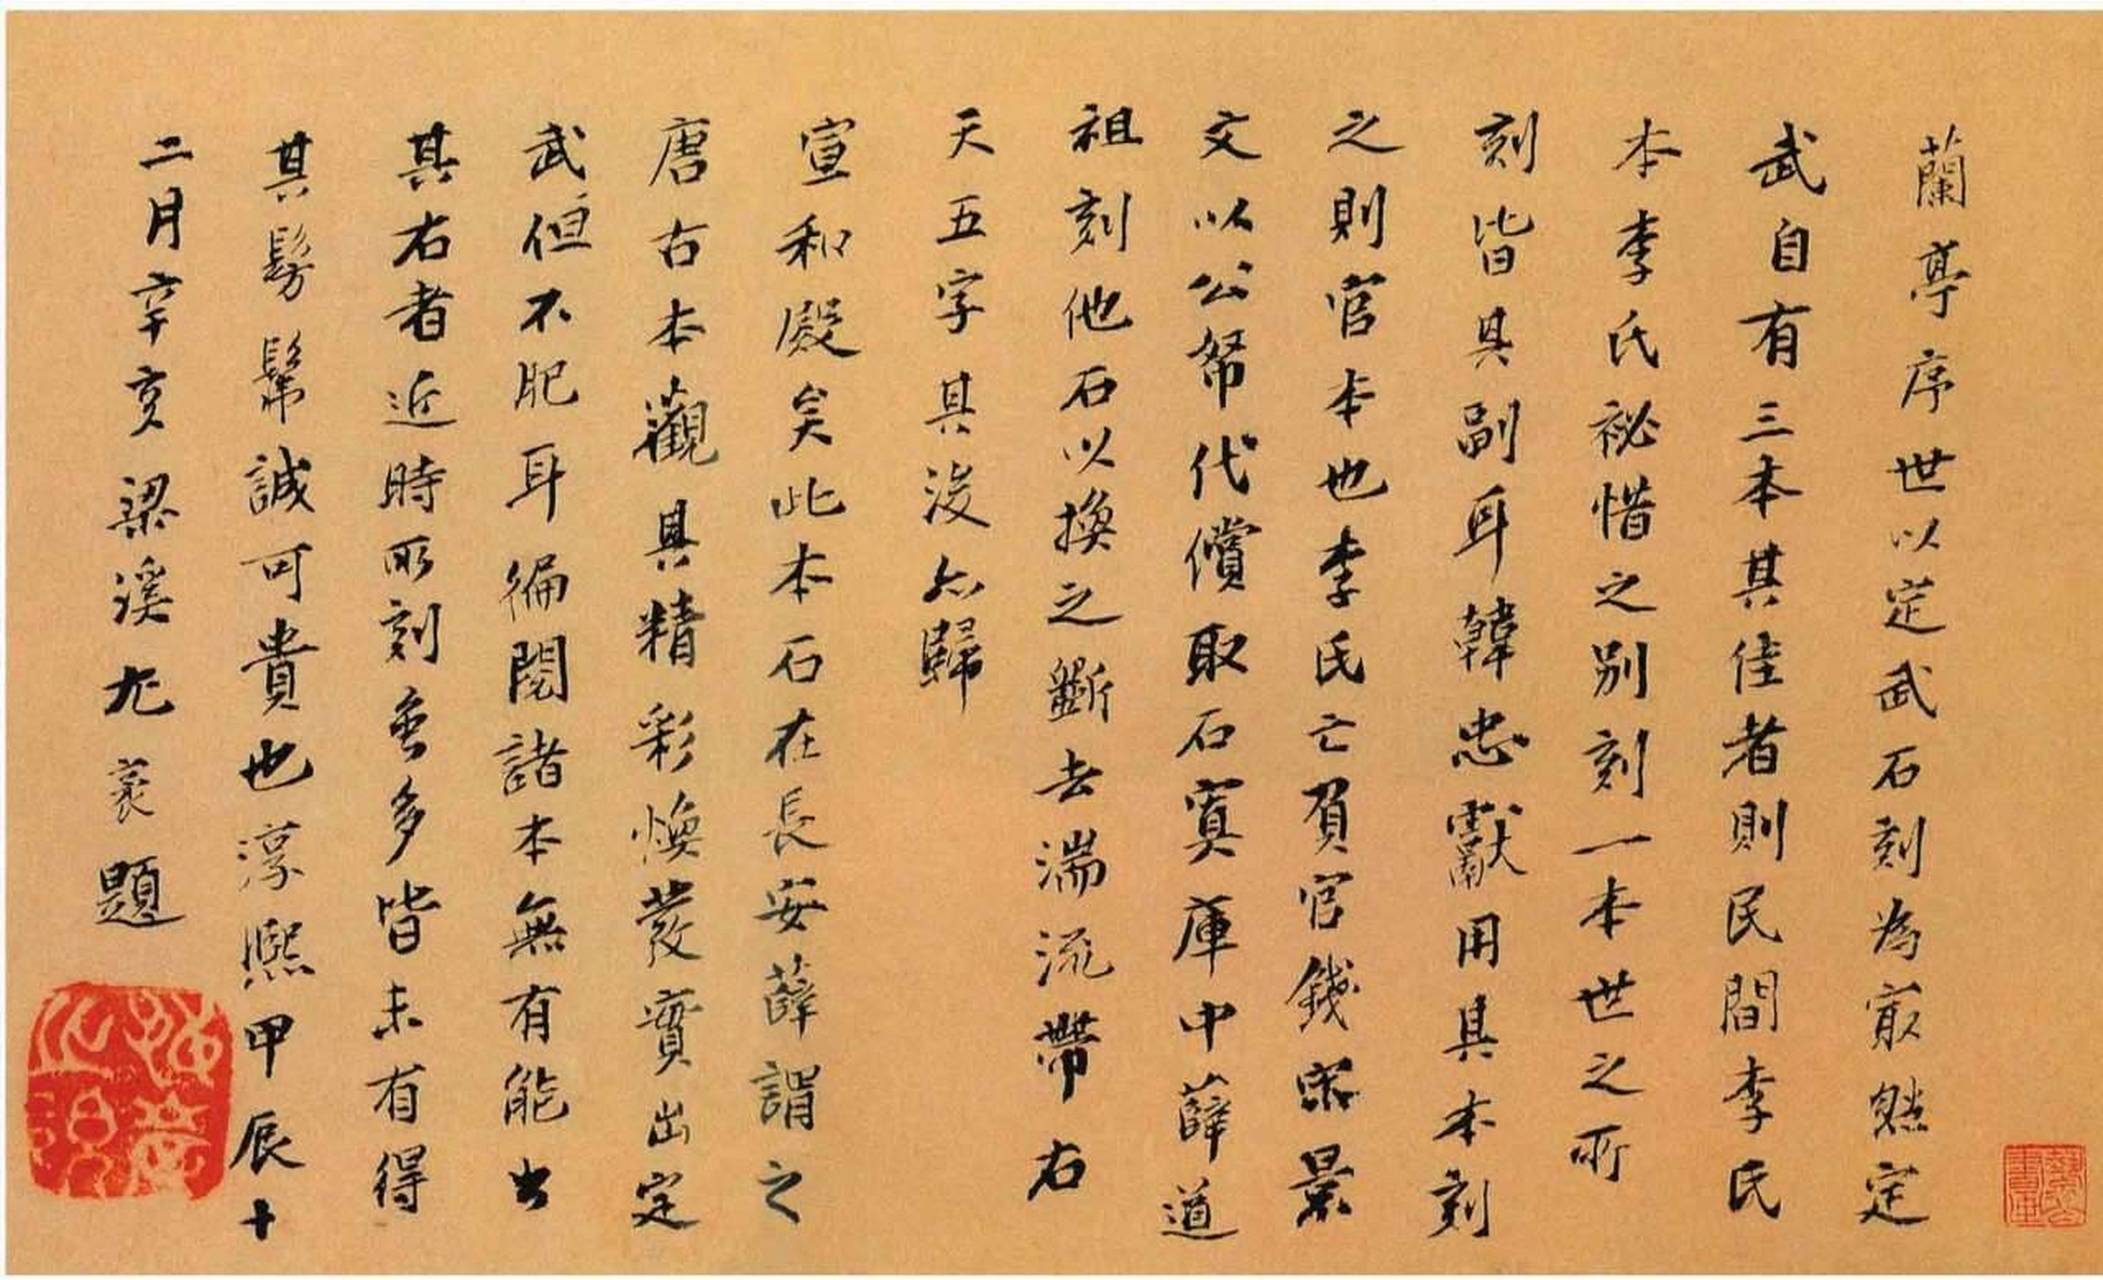 蘭亭序世以定武石刻為冣然定
武自有三本其佳者則民間李氏
本李氏祕惜之別刻一本世之所
刻皆其副耳韓忠獻用其本刻
之則官本也李氏亡負官錢宋景
文以公帑代償取石寘庫中薛道
祖刻他石以換之斲去湍流帶右
天五字其後亦歸
宣和殿矣此本石在長安薛謂之
唐古本觀其精彩煥發實出定
武但不肥耳徧閱諸本無有能出
其右者近時所刻雖多皆未有得
其髣髴誠可貴也淳熙甲辰十
二月辛亥梁溪尤袤題